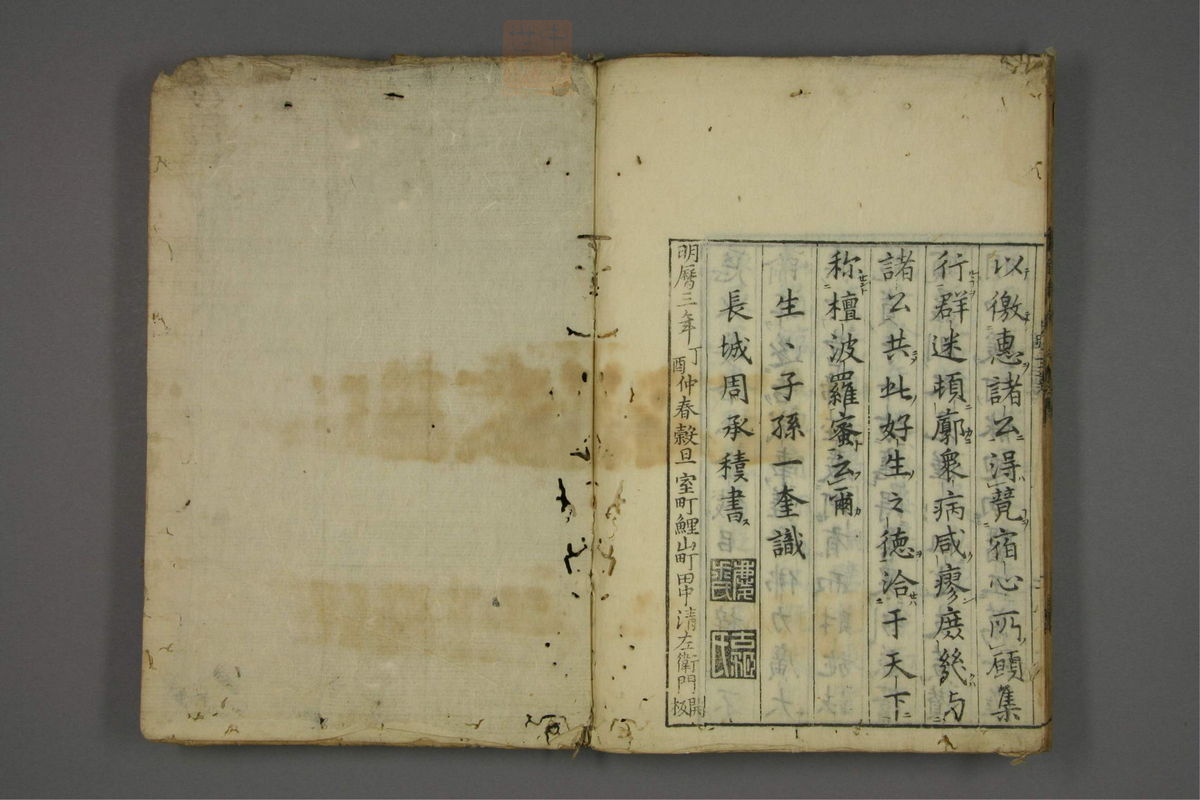 以徼惠諸公得竟宿心所願集
行群迷頓廓衆病咸瘳庶幾与
諸公共此好生之德洽于天下
称檀波羅蜜云爾
生〻子孫一奎識
長城周承積書
明曆三年丁酉仲春穀旦 室町鯉山町田中清左衛門開板